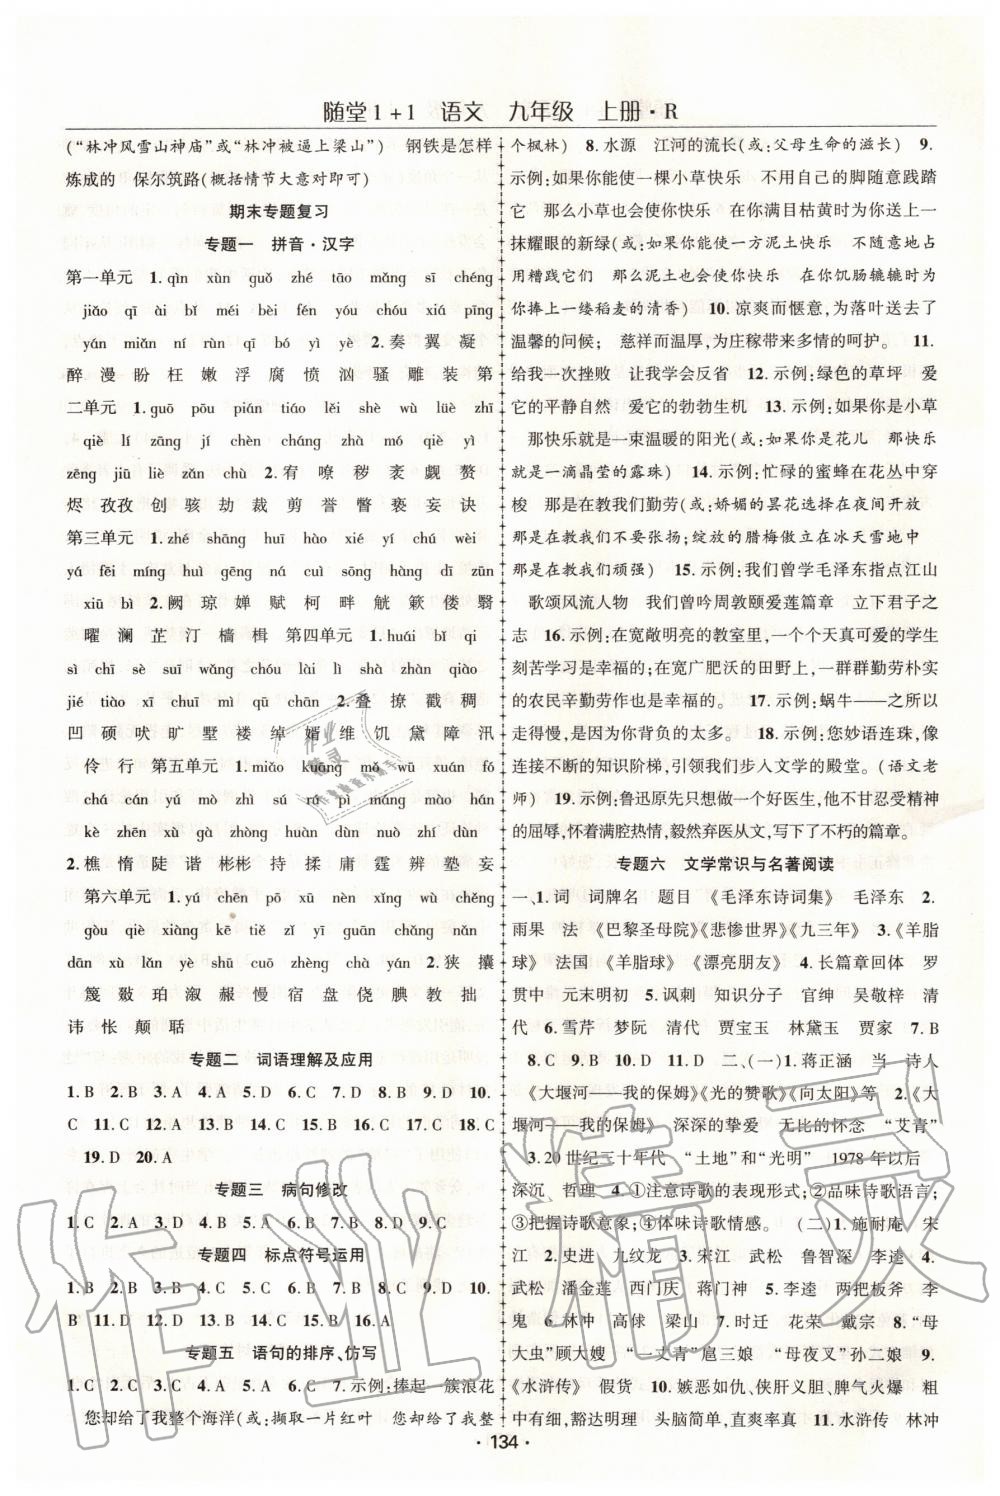 随堂1+1 语文 九年级 上册·R
(“林冲风雪山神庙”或“林冲被逼上梁山”) 钢铁是怎样
炼成的 保尔筑路(概括情节大意对即可)
期末专题复习
专题一 拼音·汉字
第一单元 1.qìn xùn guǒ zhé tāo mǎng sī chéng
jiǎo qī ài bǐ méi bèi fén yòu chóu xiá pīng
yán miǎn ní rùn qī bó yì yè 2.奏 翼 凝
醉 漫 盼 枉 嫩 浮 腐 愤 汹 骚 雕 装 第
二单元 1.guō pōu pián tiáo lěi shè wù lüè zhī
qiè lí zāng jí chèn cháng zhà mó qiè yì
zēng jiū liè zǎn chù 2.宥 嘹 秽 袤 觑 赘
烬 孜孜 创 骇 劫 裁 剪 誉 瞥 亵 妄 诀
第三单元 1.zhé shāng huī hào xié yí chú wèi
yá fēi míng huì gēng ná tíng hàng cuì cōng
xiū bì 2.阙 琼 婵 赋 柯 畔 觥 簌 偻 翳
曜 澜 芷 汀 樯 楫 第四单元 1.huái bǐ qì
sì chī sè suī wǎng chóu lài lì shà zhàn qiào
jié tiào xī chuǐ mì qǔ chān 2.叠 撩 戳 稠
凹 硕 吠 旷 墅 褛 绰 婿 维 饥 黛 障 汛
伶 行 第五单元 1.miǎo kuāng mǒ wǎ xuán fó
chá cán yú mò zhì sú rá pì máng màng màng
kè zhēn xù gà zhòng huàn dùn nuò zhí dùn
2.樵 惰 陡 谐 彬彬 持 揉 庸 霆 辨 塾 妄
第六单元 1.yú chēn pō xū nèn xīng wù chěng
gòu qiè xiàng kē tiē zǐ yī guān chǎng nǎn
dān xù lǎn yè shū cuò zhèng chà yán 2.狭 攘
篾 敠 珀 溆 赧 慢 宿 盘 侥 腆 教 拙
讳 怅 颠 聒
专题二 词语理解及应用
1.B 2.B 3.A 4.A 5.D 6.C 7.D 8.B 9.D 10.
C 11.C 12.A 13.A 14.B 15.C 16.C 17.C 18.C
19.D 20.A
专题三 病句修改
1.C 2.A 3.D 4.B 5.A 6.C 7.B 8.D 9.C
专题四 标点符号运用
1.B 2.C 3.B 4.A 5.B 6.C 7.A 8.C 9.D 10.
B 11.D 12.A 13.D 14.D 15.B 16.A
专题五 语句的排序、仿写
1.C 2.A 3.C 4.C 5.A 6.C 7.示例:捧起一簇浪花
您却给了我整个海洋(或:撷取一片红叶 您却给了我整
个枫林) 8.水源 江河的流长(或:父母生命的高长) 9.
示例:如果你能使一个小草快乐 不用自己的脚随意践踏
它 那么小草也会使你快乐 在你满目枯黄时为你送上一
抹耀眼的新绿(或:如果你能使一方泥土快乐 不随意地占
用糟践它们 那么泥土也会使你快乐 在你饥肠辘辘时为
你捧上一缕稻麦的清香) 10.凉爽而惬意,为落叶送去了
温馨的问候; 慈祥而温厚,为庄稼带来多情的呵护。 11.
给我一次挫败 让我学会反省 12.示例:绿色的草坪 爱
它的平静自然 爱它的勃勃生机 13.示例:如果你是小草
那快乐就是一束温暖的阳光(或:如果你是花儿 那快乐
就是一滴晶莹的露珠) 14.示例:忙碌的蜜蜂在花丛中穿
梭 那是在教我们勤劳(或:娇媚的昙花选择在夜里开放
那是在教我们不要张扬;绽放的腊梅傲立在冰天雪地中
那是在教我们顽强) 15.示例:我们曾学毛泽东指点江山
歌颂风流人物 我们曾吟周敦颐爱莲篇章 立下君子之
志 16.示例:在宽敞明亮的教室里,一个个天真可爱的学生
刻苦学习是幸福的;在宽广肥沃的田野上,一群群勤劳朴实
的农民辛勤劳作也是幸福的。 17.示例:蜗牛——之所以
走得慢,是因为你背负的太多。 18.示例:您妙语连珠,像
连接不断的知识阶梯,引我们步入文学的殿堂。(语文老
师) 19.示例:鲁迅原先只想做一个好医生,他不甘忍受精神
的屈辱,怀着满腔热情,毅然弃医从文,写下了不朽的篇章。
专题六 文学常识与名著阅读
一、1.词 词牌名 题目 《毛泽东诗词集》 毛泽东 2.
雨果 法 《巴黎圣母院》《悲惨世界》《九三年》 3.《羊脂
球》 法国 《羊脂球》 《漂亮朋友》 4.长篇章回体 罗
贯中 元末明初 5.讽刺 知识分子 官绅 吴敬梓 清
代 6.雪芹 梦阮 清代 贾宝玉 林黛玉 贾家 7.B
8.C 9.B 10.D 11.D 二、(一)1.蒋正涵 当 诗人
《大堰河——我的保姆》《光的赞歌》《向太阳》等 2.《大
堰河——我的保姆》 深深的挚爱 无比的怀念 “艾青”
3.20世纪三十年代 “土地”和“光明” 1978年以后
深沉 哲理 4.①注意诗歌的表现形式;②品味诗歌语言;
③把握诗歌意象;④体味诗歌情感。 (二)1.施耐庵 宋
江 2.史进 九纹龙 3.宋江 武松 鲁智深 李逵 4.
武松 潘金莲 西门庆 蒋门神 5.李逵 两把板斧 李
鬼 6.林冲 高俅 梁山 7.时迁 花荣 戴宗 8.“母
大虫”顾大嫂 “一丈青”扈三娘 “母夜叉”孙二娘 9.
《水浒传》 假货 10.嫉恶如仇、侠肝义胆、脾气火爆 粗
中有细,豁达明理 头脑简单、直爽率真 11.水浒传 林冲
·134·
作业精灵